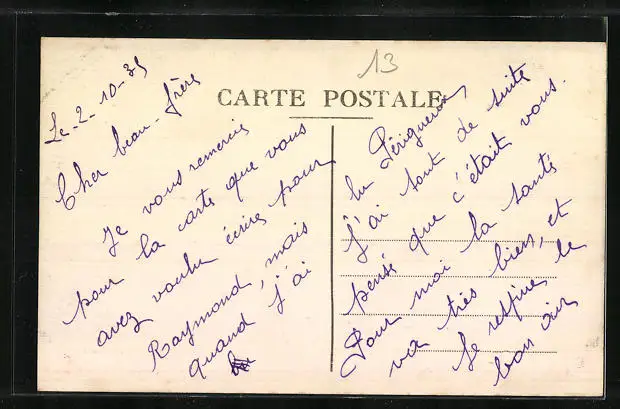 13
CARTE POSTALE
Le-2-10-35
Cher beau-frère
Je vous remercie
pour la carte que vous
avez voulu écrire pour
Raymond, mais
quand j'ai
lu Périgueux,
j'ai tout de suite
pensé que c'était vous.
Pour moi la santé
va très bien, et
je respire le
bon air